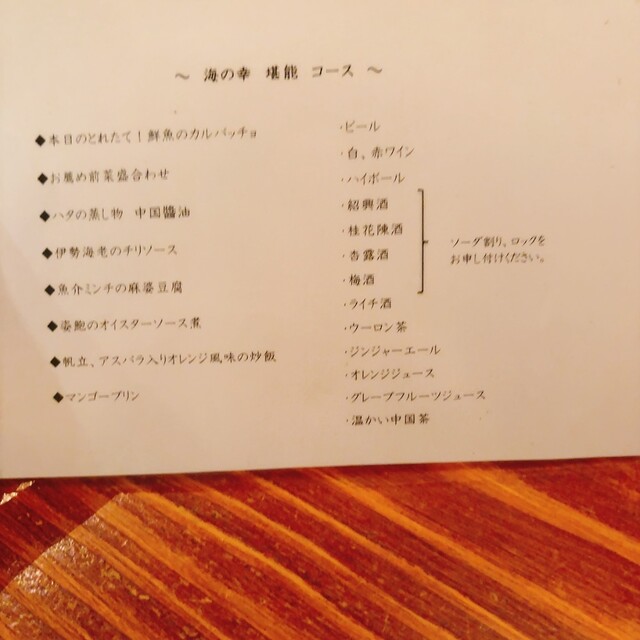 ～ 海の幸 堪能 コース ～
◆本日のとれたて！鮮魚のカルパッチョ
◆お薦め前菜盛合わせ
◆ハタの蒸し物 中国醬油
◆伊勢海老のチリソース
◆魚介ミンチの麻婆豆腐
◆姿鮑のオイスターソース煮
◆帆立、アスパラ入りオレンジ風味の炒飯
◆マンゴープリン
・ビール
・白、赤ワイン
・ハイボール
・紹興酒
・桂花陳酒
・杏露酒
・梅酒
・ライチ酒
・ウーロン茶
・ジンジャーエール
・オレンジジュース
・グレープフルーツジュース
・温かい中国茶
ソーダ割り、ロックを
お申し付けください。